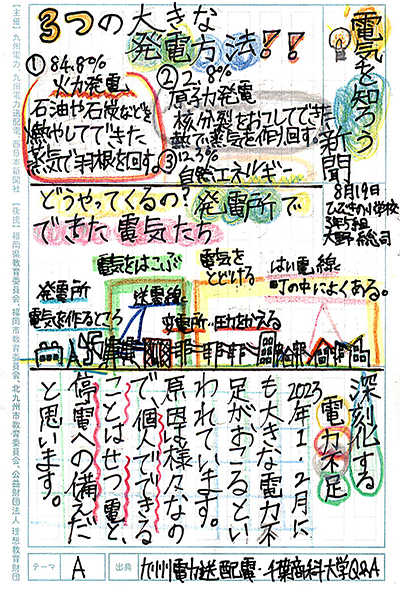 電気を知ろう
新聞
8月19日
ひびきの小学校
3年5組
3つの大きな
発電方法!!
①84.8%
火力発電
石油や石炭などを
燃やしてできた
蒸気で羽根を回す。
②2.8%
原子力発電
核分裂をおこしてできた
熱で蒸気を作り回す。
③12.3%
自然エネルギー
どうやってくるの?発電所で
できた電気たち
電気をはこぶ
電気を
とどける
はい電線
町の中によくある。
発電所
電気を作るところ
送電線
変電所…圧力をかえる
深刻化する
電力不足
2023
年1.2月に
も大きな電力不
足がおこるとい
われています。
原因は様々なの
で、個人でできる
ことはせつ電と、
停電への備えだ
と思います。
テーマ A 出典 九州電力送配電・千葉商科大学Q&A
【主催】九州電力、九州電力送配電、西日本新聞社 【後援】福岡県教育委員会、福岡市教育委員会、北九州市教育委員会、公益財団法人 理想教育財団